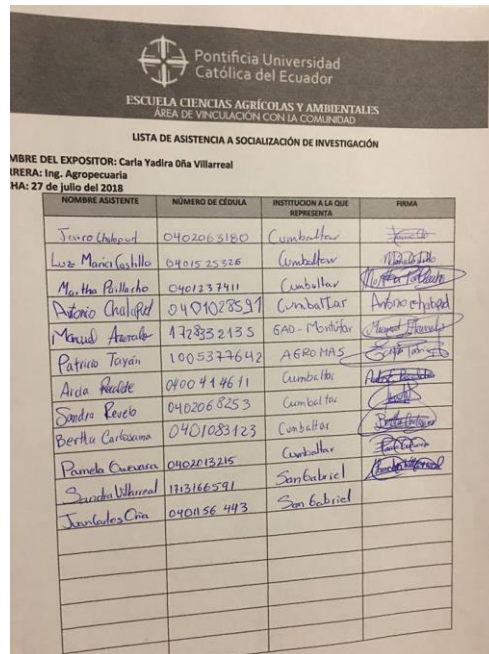 Pontificia Universidad
Católica del Ecuador
ESCUELA CIENCIAS AGRÍCOLAS Y AMBIENTALES
ÁREA DE VINCULACIÓN CON LA COMUNIDAD
LISTA DE ASISTENCIA A SOCIALIZACIÓN DE INVESTIGACIÓN
MBRE DEL EXPOSITOR: Carla Yadira Oña Villarreal
RRERA: Ing. Agropecuaria
HA: 27 de julio del 2018
NOMBRE ASISTENTE NÚMERO DE CÉDULA INSTITUCION A LA QUE REPRESENTA FIRMA
0402063180 Cumbaltar
Luz Maria Castillo 0401525326 Cumbaltar
Martha Paillacho 0401237411 Cumbaltar
Antonio Chalapud 0401028591 Cumbaltar Antonio chalapud
Manuel 172832135 GAD - Montúfar
Patricio Tayán 1005377642 AGROMAS
Aida Recalde 0400414611 Cumbaltar
Sandra Revelo 0402068253 Cumbaltar
Bertha Carlosama 0401083123 Cumbaltar
Pamela Guevara 0402013215 Cumbaltar
Sandra Villarreal 1713166591 San Gabriel
Juan Carlos 0401156 443 San Gabriel